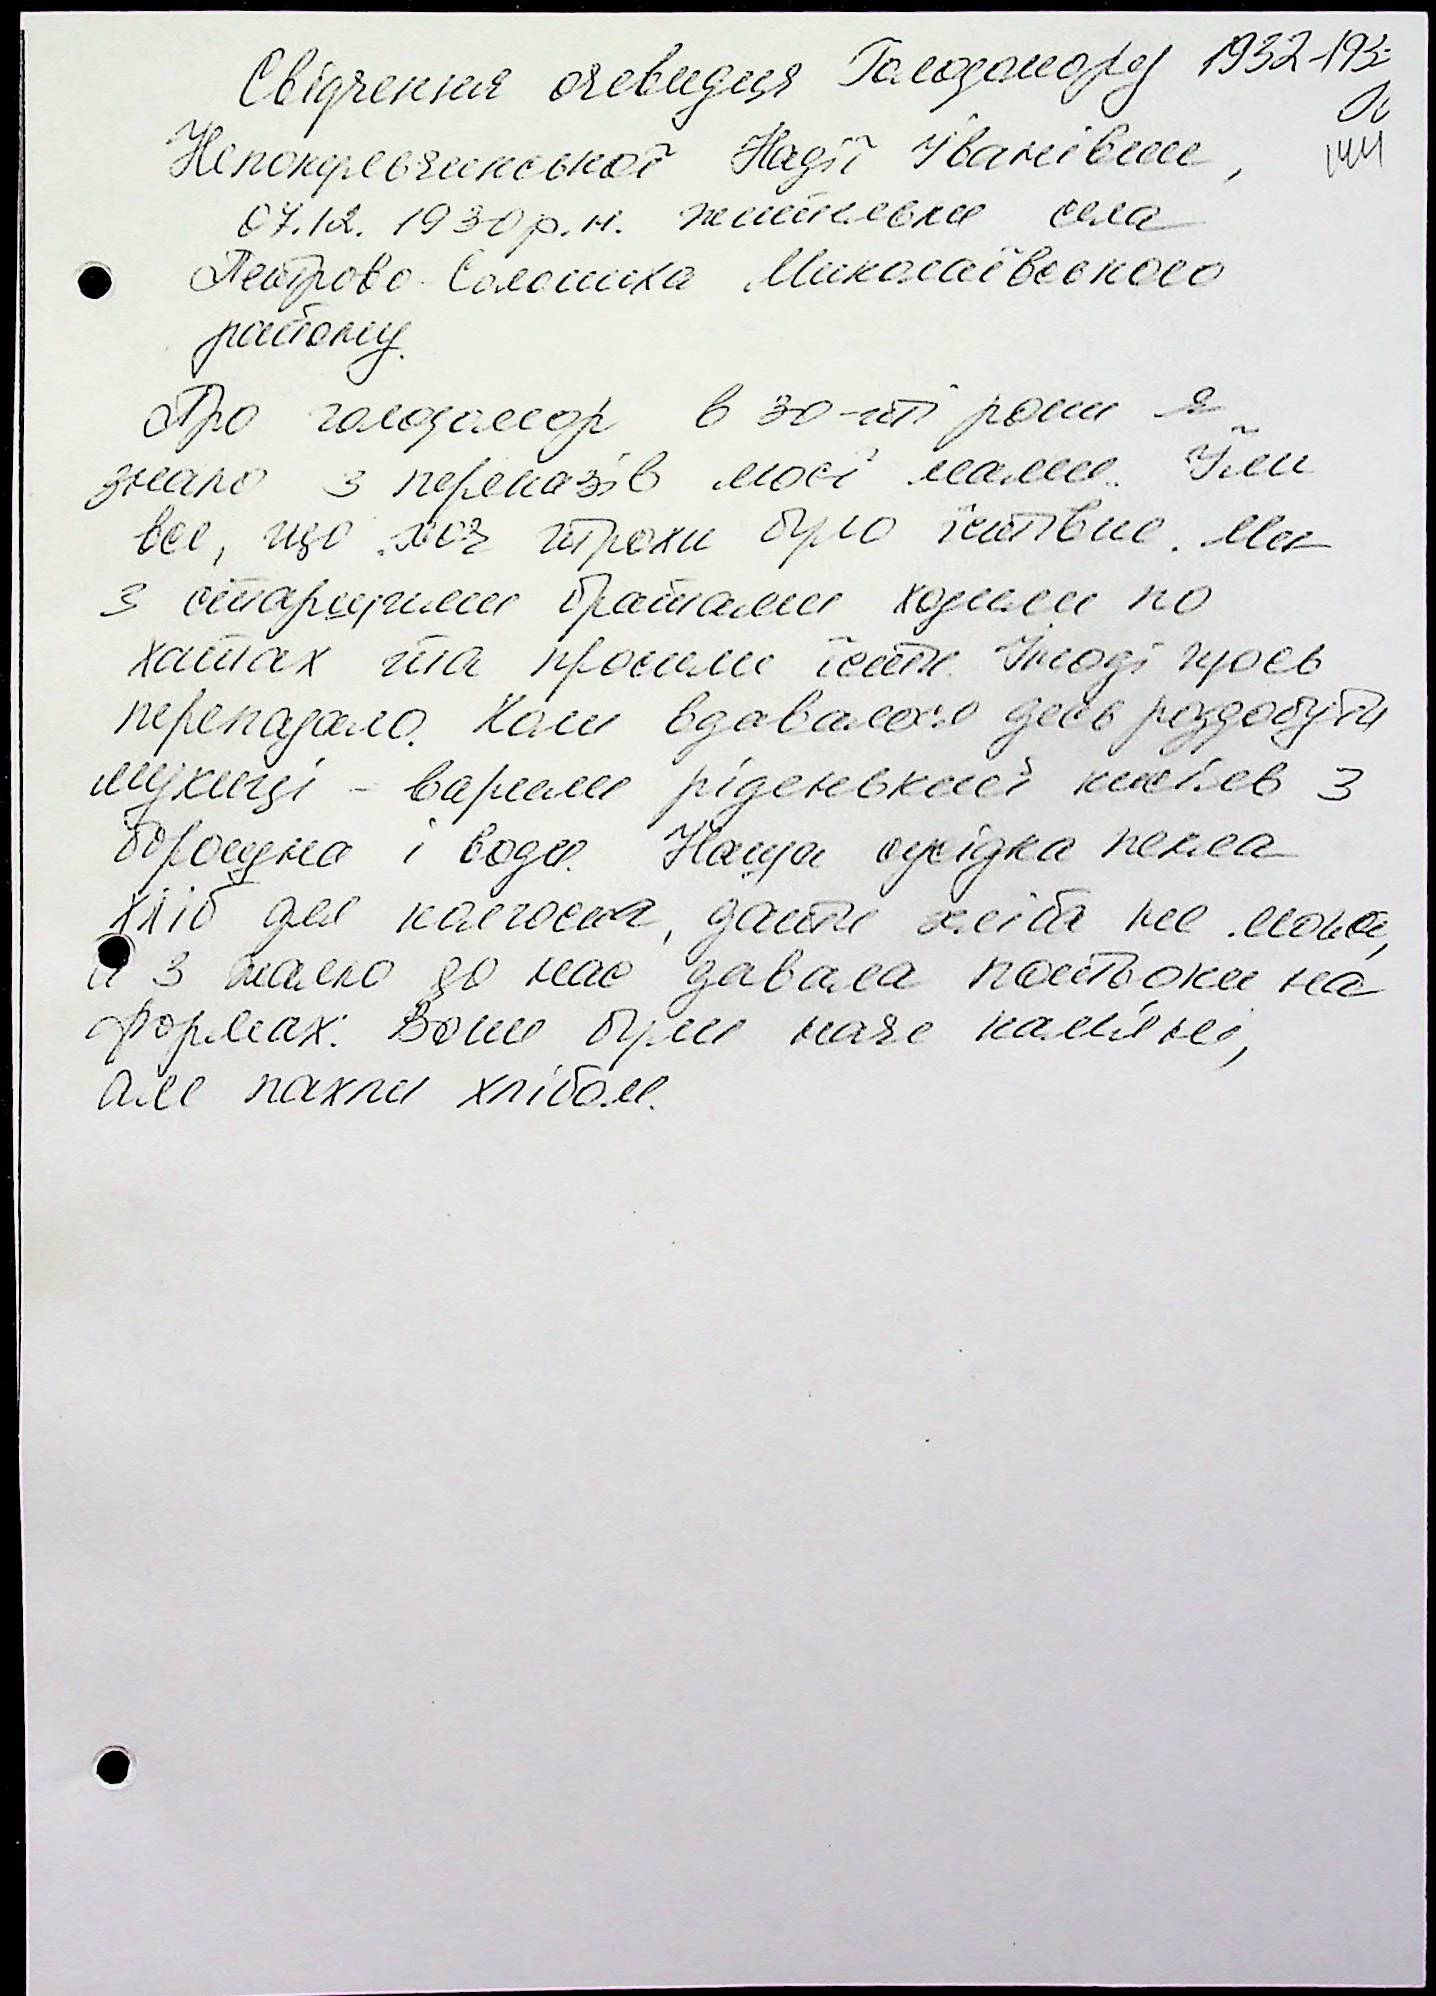 Свідчення очевидця Голодомору 1932-193
Надії Іванівни,
144
07.12.1930 р.н. жительки села
Петрово-Солониха Миколаївського
району.
Про голодомор в 30-ті роки я
знаю з переказів моєї мами. Їли
все, що хоч трохи було їстівне. Ми
з старшими братами ходили по
хатах та просили їсти. Іноді щось
перепадало. Коли вдавалося десь роздобути
мукиці - варили ріденький кисіль з
борошна і води. Наша сусідка пекла
хліб для колгоспа, дати хліба не могла,
а з жалю до нас давала потьоки на
формах. Вони були наче кам'яні,
але пахли хлібом.